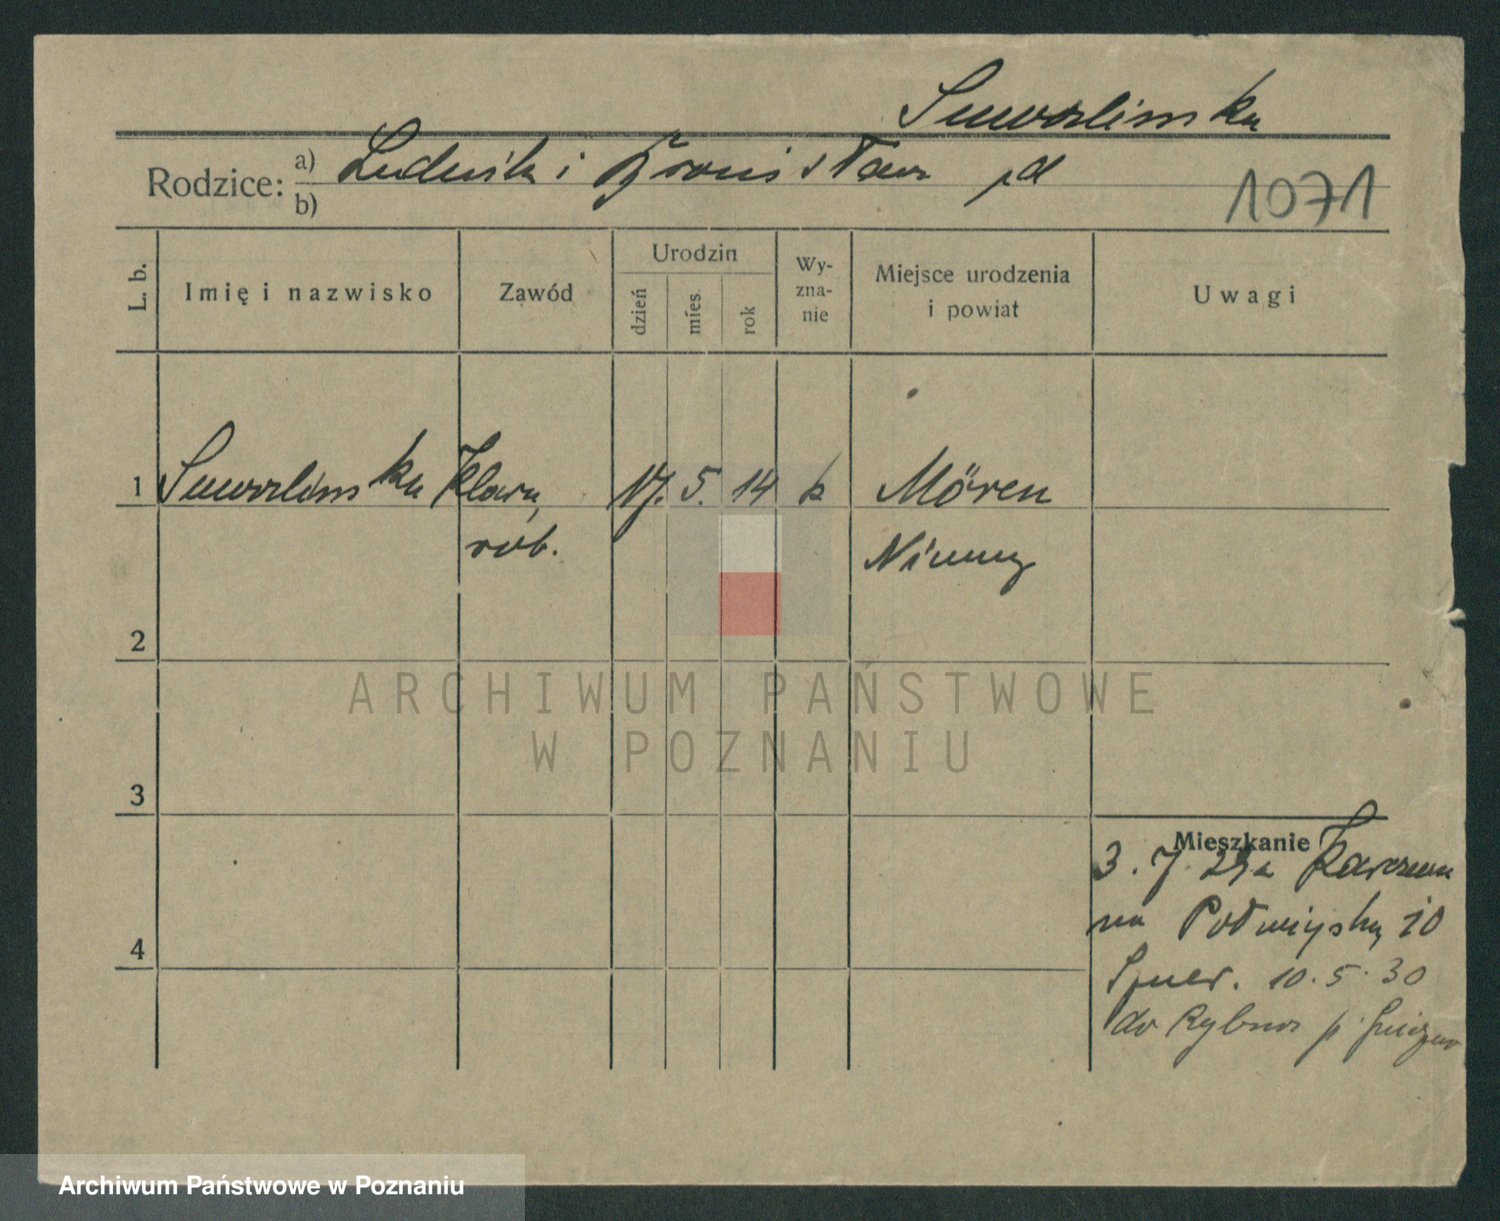 Suwalinska
Rodzice: a) Ludwik i Bronisława
b)
1071
L. b.
Imię i nazwisko
Zawód
Urodzin
dzień
mies.
rok
Wy-
zna-
nie
Miejsce urodzenia
i powiat
Uwagi
1
Klara,
17. 5. 14 k
Mören
rob.
Niemcy
2
ARCHIWUM PAŃSTWOWE
W POZNANIU
3
Mieszkanie
3. 7. 29 z
na 10
4
10.5.30
do Rybna p. Gniezno
Archiwum Państwowe w Poznaniu